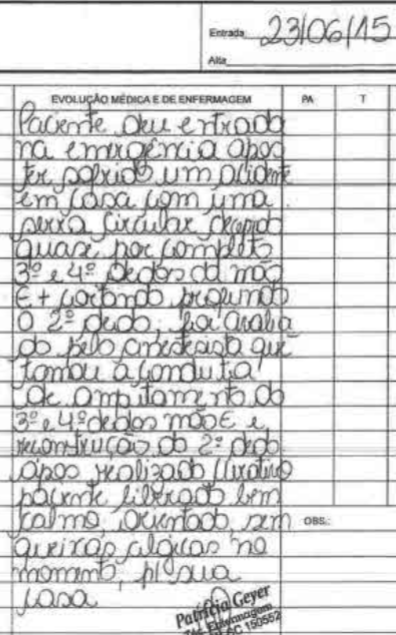 Entrada 23/06/15
Alta
EVOLUÇÃO MÉDICA E DE ENFERMAGEM PA T
Paciente deu entrada
na emergência apos
ter sofrido um acidente
em casa com uma
serra circular decepado
quase por completo
3º e 4º dedos da mão
E + cortando profundo
O 2º dedo; foi avalia
do pelo anestesista que
tomou a conduta
de amputamento do
3º e 4º dedos mão E e
reconstrução do 2º dedo
apos realizado curativo
paciente liberado bem
calmo, orientado, sem
OBS.:
queixas algicas no
momento, p/ sua
casa
Patricia Geyer
150552